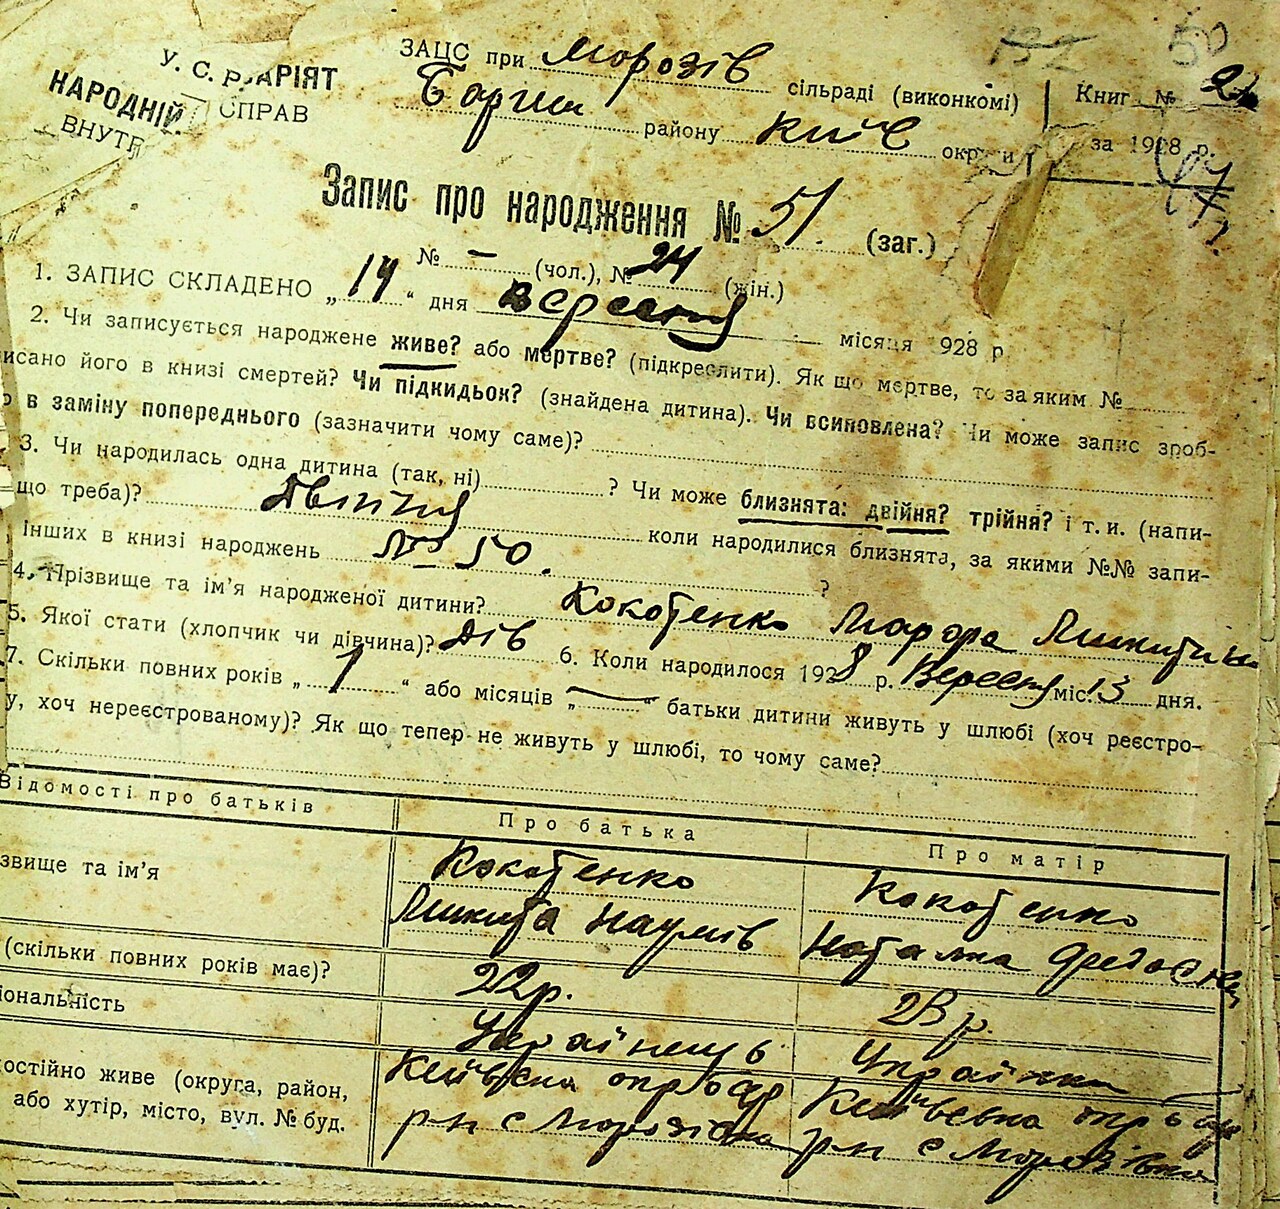 У. С. Р.
НАРОДНІЙ АРІЯТ
ВНУТР СПРАВ
ЗАЦС при Морозів сільраді (виконкомі)
Бориш району Київ округи
Книг № 2
за 1928 р.
50
Запис про народження № 51. (заг.)
№ – (чол.), № 24 (жін.)
1. ЗАПИС СКЛАДЕНО „14“ дня вересня місяця 1928 р
2. Чи записується народжене живе? або мертве? (підкреслити). Як що мертве, то за яким №
исано його в книзі смертей? Чи підкидьок? (знайдена дитина). Чи всиновлена? Чи може запис зроб-
о в заміну попереднього (зазначити чому саме)?
3. Чи народилась одна дитина (так, ні) ? Чи може близнята: двійня? трійня? і т. и. (напи-
що треба)? Двійня коли народилися близнята, за якими №№ запи-
інших в книзі народжень № 50. ?
4. Прізвище та ім’я народженої дитини? Кокотенко
5. Якої стати (хлопчик чи дівчина)? Дів 6. Коли народилося 1928 р. Вересня міс. 13 дня.
7. Скільки повних років „1“ або місяців „—“ батьки дитини живуть у шлюбі (хоч реєстро-
у, хоч нереєстрованому)? Як що тепер не живуть у шлюбі, то чому саме?
Відомості про батьків
Про батька
Про матір
звище та ім’я
Кокотенко
Микита Наумів
Кокотенко
Наталка Федосієв
(скільки повних років має)?
22р.
23 р.
іональність
Українець
Українка
остійно живе (округа, район,
або хутір, місто, вул. № буд.
Київська окр Бор
р-н с Морозівка
Київська окр Бор
р-н с Морозівка